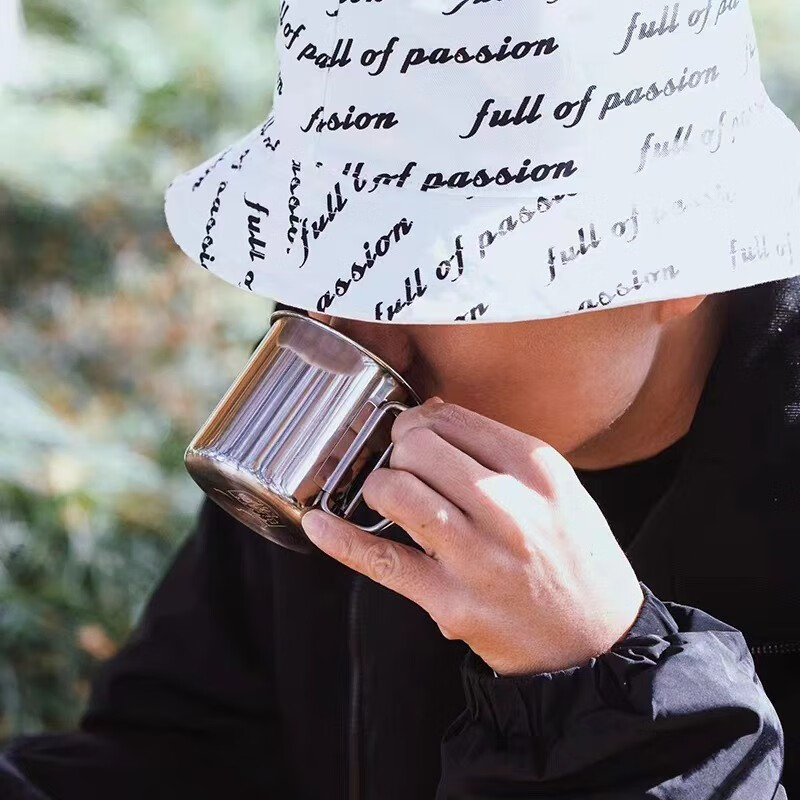 full of
of pall of passion
fusion
full of passion
full of
ll of passion
full
passion
full of passion
full of
passion
full of
passion
full of
passion